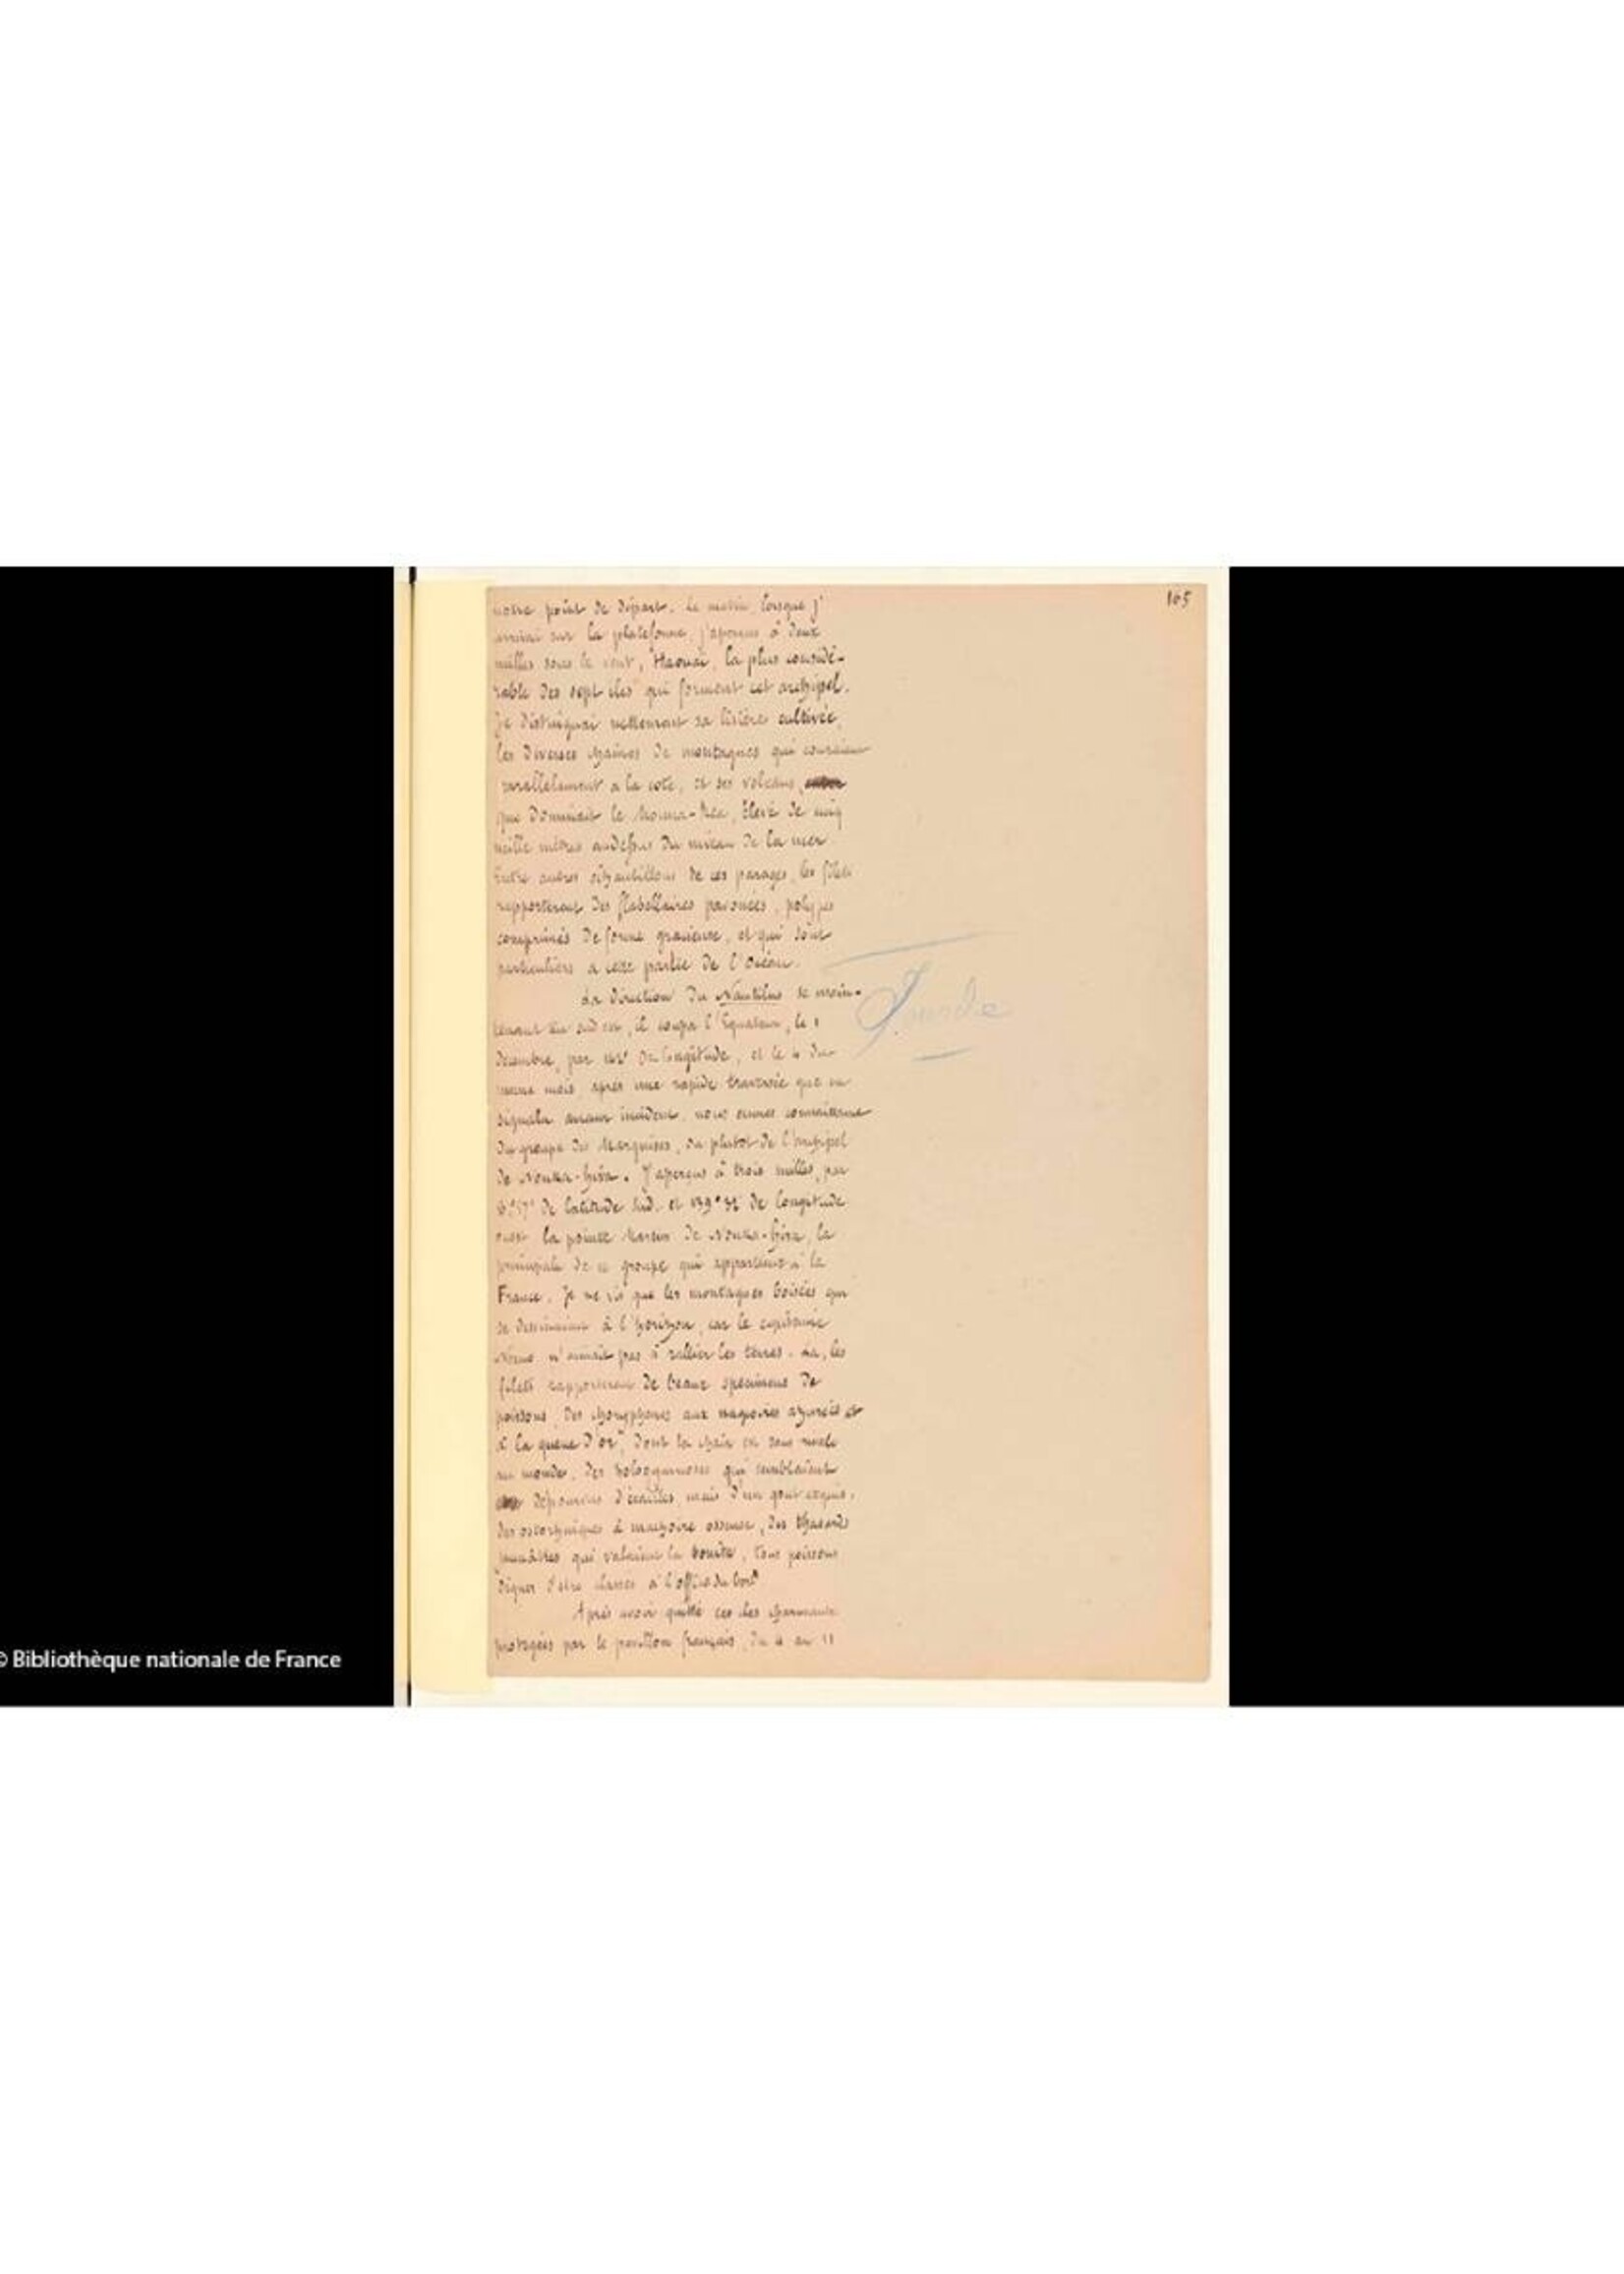 165
notre point de départ. Le matin lorsque j'
arrivai sur la plateforme, j'aperçus à deux
milles sous le vent, Haouaï, la plus considé-
rable des sept iles qui forment cet archipel.
Je distinguai nettement sa lisière cultivée,
les diverses chaines de montagnes qui couraient
parallèlement à la cote, et ses volcans,
que dominait le Mouna-Rea, élevé de cinq
mille mètres audessus du niveau de la mer
Entre autres échantillons de ces parages, les filets
rapporterent des flabellaires pavonées, polypes
comprimés de forme gracieuse, et qui sont
particuliers à cette partie de l'Océan.
La direction du Nautilus se main-
tenant au sud est, il coupa l'Equateur, le 1
décembre, par 142° de longitude, et le 4 du
meme mois, après une rapide traversée que ne
signala aucun incident, nous eumes connaissance
du groupe des Marquises, ou plutot de l'archipel
de Nouka-hiva. J'aperçus à trois milles, par
8°57' de latitude sud, et 139°32' de longitude
ouest la pointe Martin de Nouka-hiva, la
principale de ce groupe qui appartient à la
France. Je ne vis que les montagnes boisées qui
se dessinaient à l'horizon, car le capitaine
Nemo n'aimait pas à rallier les terres. Là, les
filets rapporterent de beaux specimens de
poissons, des choryphenes aux nageoires azurées et
à la queue d'or, dont la chair est sans rivale
au monde, des hologymnoses qui semblaient
dépourvus d'écailles mais d'un gout exquis,
des ostorhinques à machoire osseuse, des thasards
jaunâtres qui valaient la bonite, tous poissons
dignes d'etre classés à l'office du bord
Après avoir quitté ces iles charmantes
protégées par le pavillon français, du 4 au 11
© Bibliothèque nationale de France